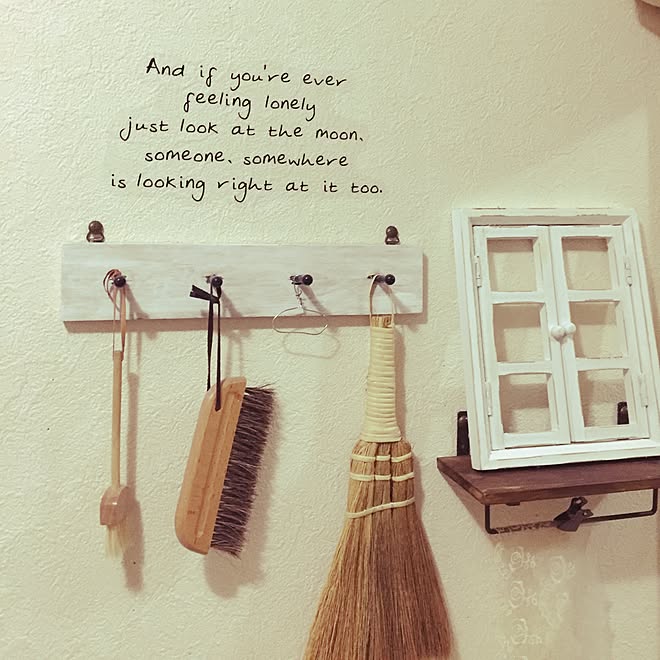 And if you're ever
feeling lonely
just look at the moon.
someone. somewhere
is looking right at it too.